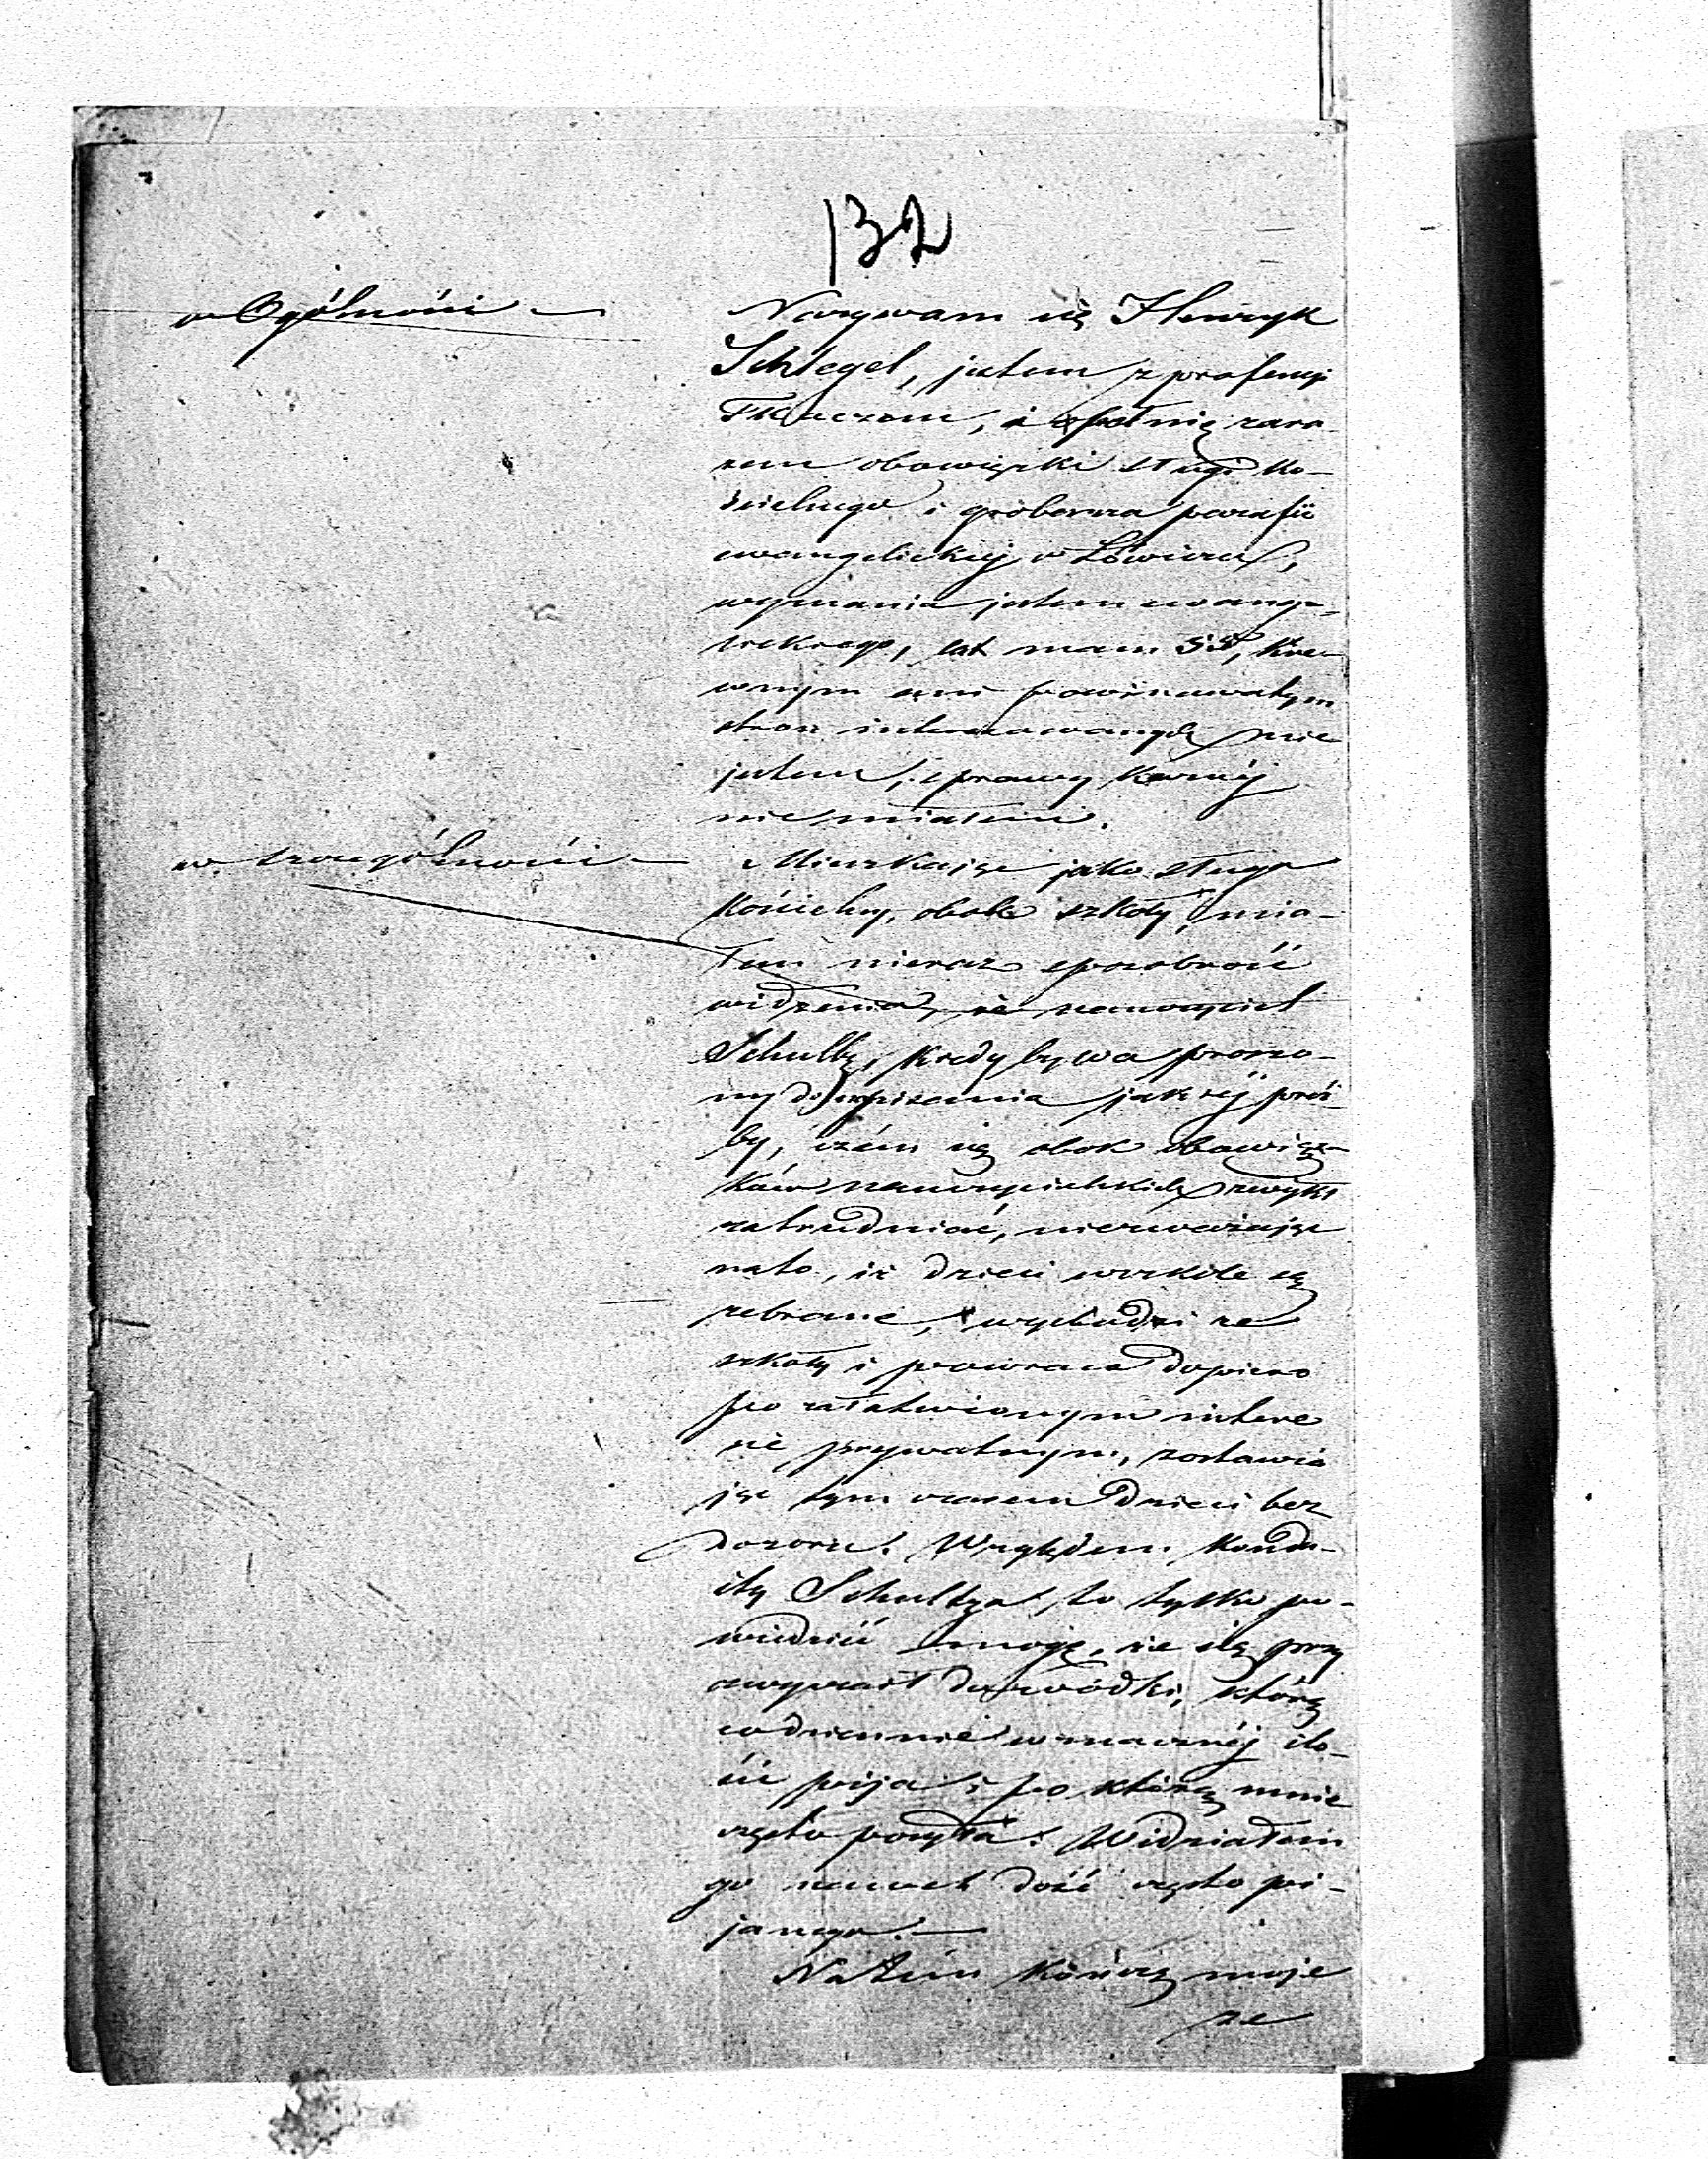 132
w Ogólności — Nazywam się Henryk
Schlegel, jestem z profesyi
Tkaczem, i spełnię zara-
zem obowiązki sługi ko-
ścielnego i grobarza parafii
ewangelickiej w Łowiczu,
wyznania jestem ewange-
lickiego, lat mam, kre-
wnym ani powinowatym
stron interesowanych nie
jestem, sprawy karnéj
nie miałem.
w szczególności — Mieszkając jako sługa
kościelny, obok szkoły, mia-
łem nieraz sposobność
widzenia, że nauczyciel
Schultz, kiedy bywa proszo-
ny do napisania jakiéj proś-
by, czém się obok obowiąz-
ków nauczycielskich zwykł
zatrudniać, niezważając
nato, iż dzieci w szkole są
zebrane, wychodzi ze
szkoły i powraca dopiero
po załatwionym intere
sie prywatnym, zostawia
jąc tym czasem dzieci bez
dozoru. Względem kondu-
ity Schultza, to tylko po-
wiedzieć mogę, że się przy
zwyczaił do wódki, którą
codziennie w znacznéj ilo-
ści pija i po którą mnie
często posyła. Widziałem
go nawet dość często pi-
janego. —
Na tém kończę moje
ze